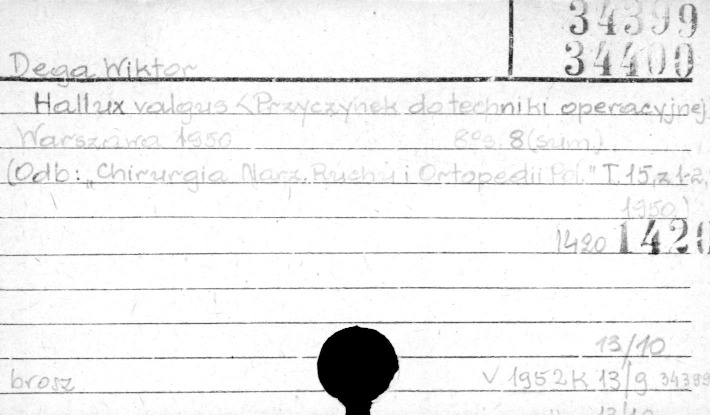 34399
34400
Dega Wiktor
Hallux valgus <Przyczynek do techniki operacyjnej
Warszawa 1950 8° s. 8 (sum.)
(Odb: „Chirurgia Narz. Ruchu i Ortopedii Pol." T. 15, z 1-2,
1950)
1420 1420
13/10
brosz V 1952 K 13/9 34399
13/10